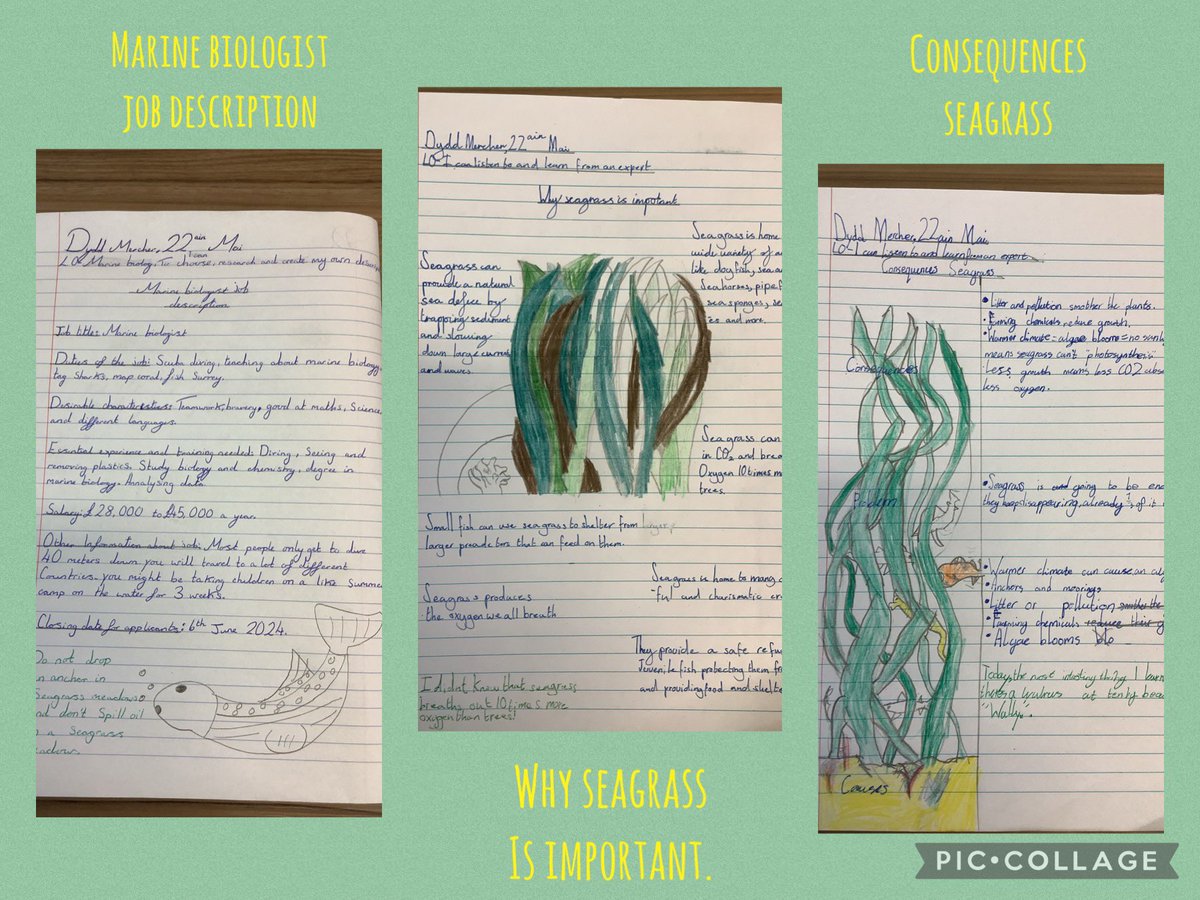 MARINE BIOLOGIST
JOB DESCRIPTION
Dydd Mercher, 22ain Mai
I can
LO: Marine biolog. To choose, research and create my own
Marine biologist job
description
Job title: Marine biologist
Duties of the job: Scuba diving, teaching about marine biology,
tag sharks, map coral, fish
Desirable characteristics: Teamwork, bravery, good at maths, Science
and different languages.
Essential experience and training needed: Diving, Seeing and
removing plastics. Study biology and chemistry, degree in
marine biology. Analysing data.
Salary: £28,000 to £45,000 a year.
Other Information about job: Most people only get to dive
40 meters down you will travel to a lot of different
Countries. you might be taking children on a like Summer
camp on the water for 3 weeks.
Closing date for applicants: 6th June 2024.
Do not drop
an anchor in
Seagrass meadows
and don't Spill oil
in a Seagrass
Dydd Mercher, 22ain Mai
LO-I can listen to and learn from an expert
Why seagrass is impotant
Seagrass can
provide a natural
sea defice by
trapping sediment
and slowing
down large
and waves.
Seagrass is home
wide variety of
like dogfish, sea
Seahorses, pipe f
sea sponges,
and more.
Sea grass can
in CO2 and
Oxygen 10 times
trees.
Small fish can use seagrass to shelter from
larger preadetors that can feed on them.
Seagrass produces
the oxygen we all breath
Seagrass is home to many
ful and charismatic
They provide a safe
fish protecting them
and providing food and
I didnt know that seagrass
breaths out 10 times more
oxygen than trees!
WHY SEAGRASS
IS IMPORTANT.
CONSEQUENCES
SEAGRASS
Dydd Mercher, 22ain Mai
LO-I can listen to and learn from an expert.
Consequences Seagrass
•Litter and pollution smother the plants.
•Farming chemicals reduce growth.
•Warmer climate = algae blooms = no
means seagrass can't 'photosynthesis'
•Less growth means less CO2
less oxygen.
Consequences
Problem
Causes
•Seagrass is going to be
they keep disappearing, already
•Warmer climate can cause an
•Anchors and moorings
•Litter or pollution
•Farming chemicals
•Algae blooms
Today, the most intresting thing I
theres a walrus at tenby
"Wally".
PIC•COLLAGE